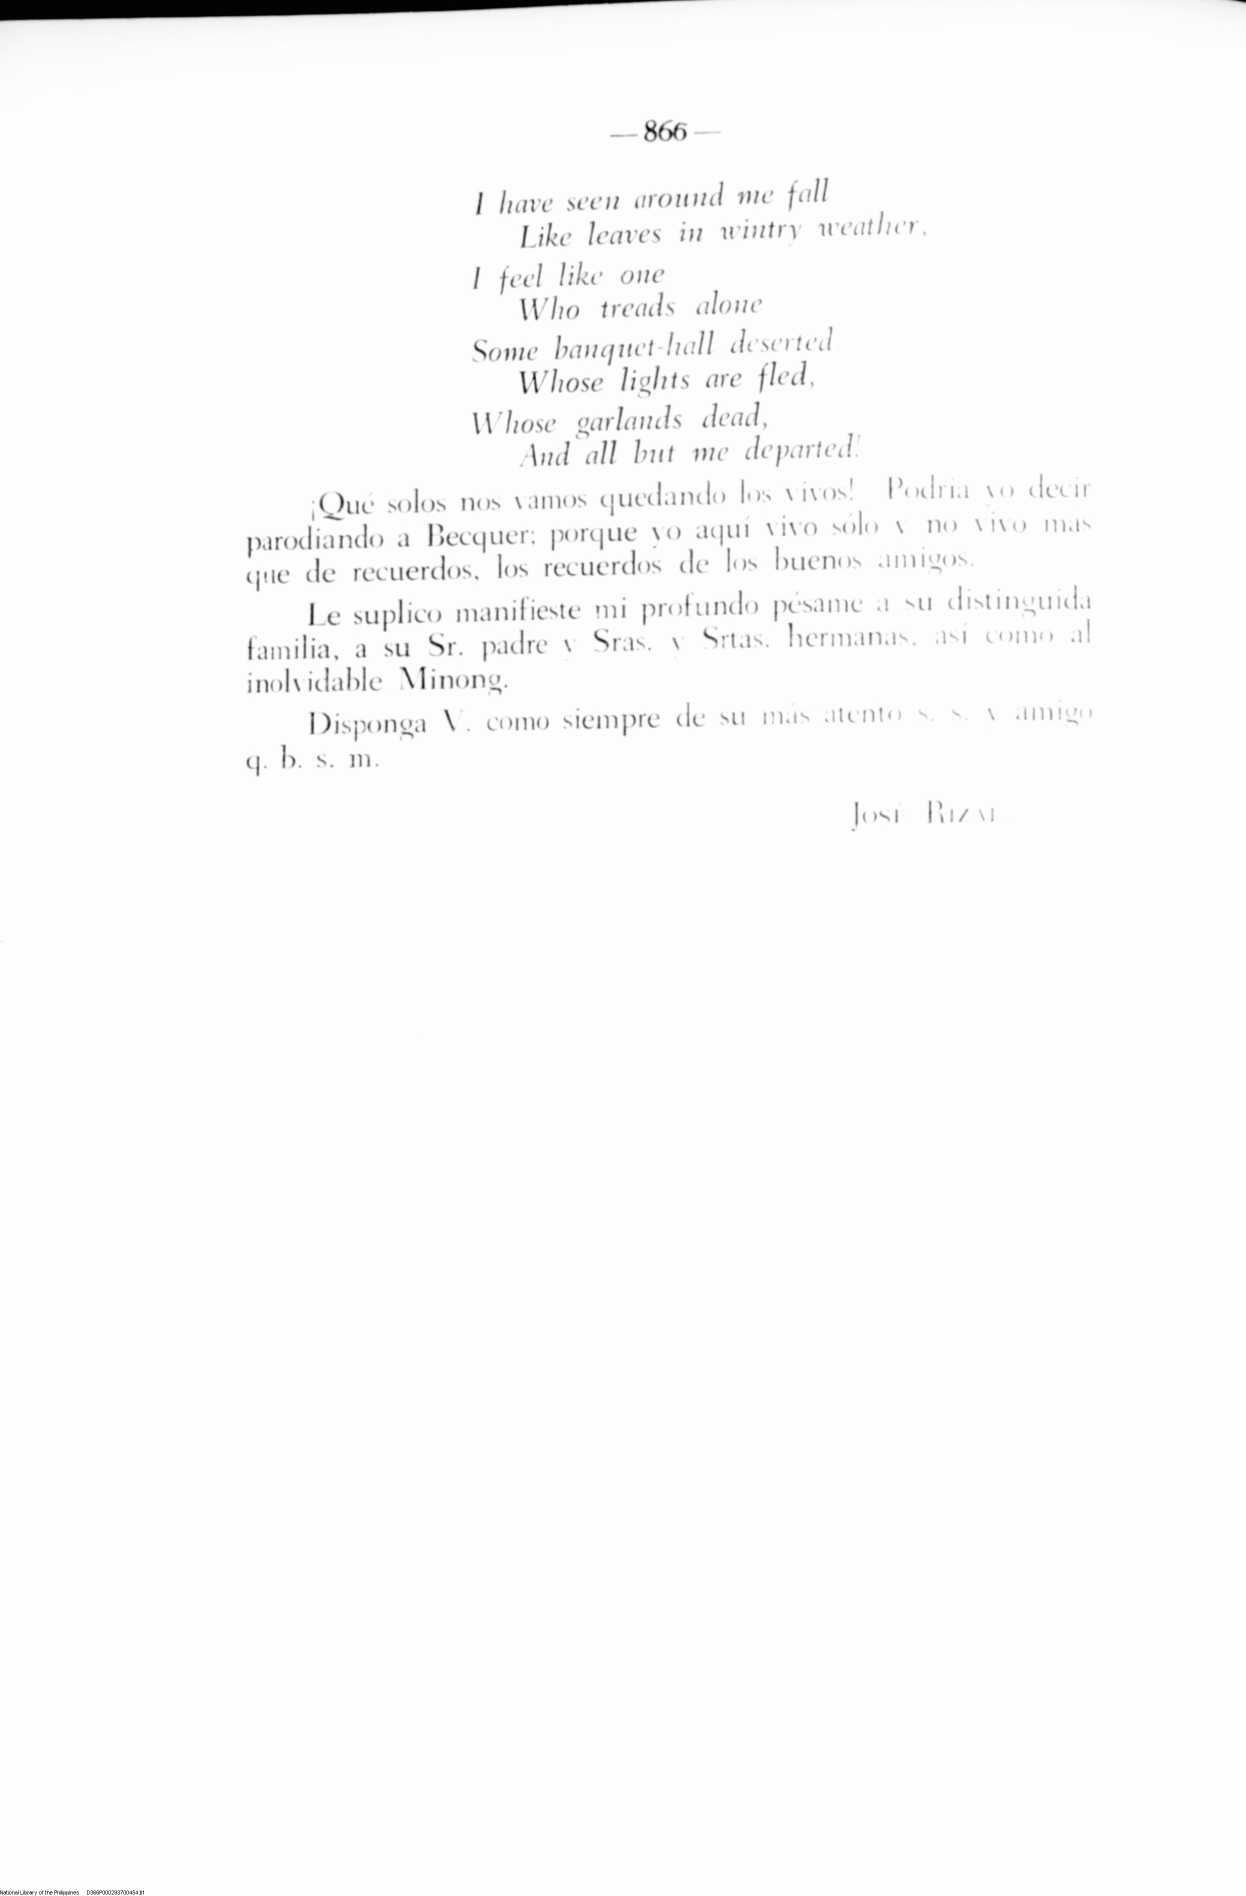 — 866 —
I have seen around me fall
Like leaves in wintry weather,
I feel like one
Who treads alone
Some banquet-hall deserted
Whose lights are fled,
Whose garlands dead,
And all but me departed!
¡Qué solos nos vamos quedando los vivos! Podría yo decir
parodiando a Becquer; porque yo aquí vivo sólo y no vivo más
que de recuerdos, los recuerdos de los buenos amigos.
Le suplico manifieste mi profundo pésame a su distinguida
familia, a su Sr. padre y Sras. y Srtas. hermanas, así como al
inolvidable Minong.
Disponga V. como siempre de su más atento s. s. y amigo
q. b. s. m.
José Rizal
National Library of the Philippines D366P000283700454.tif